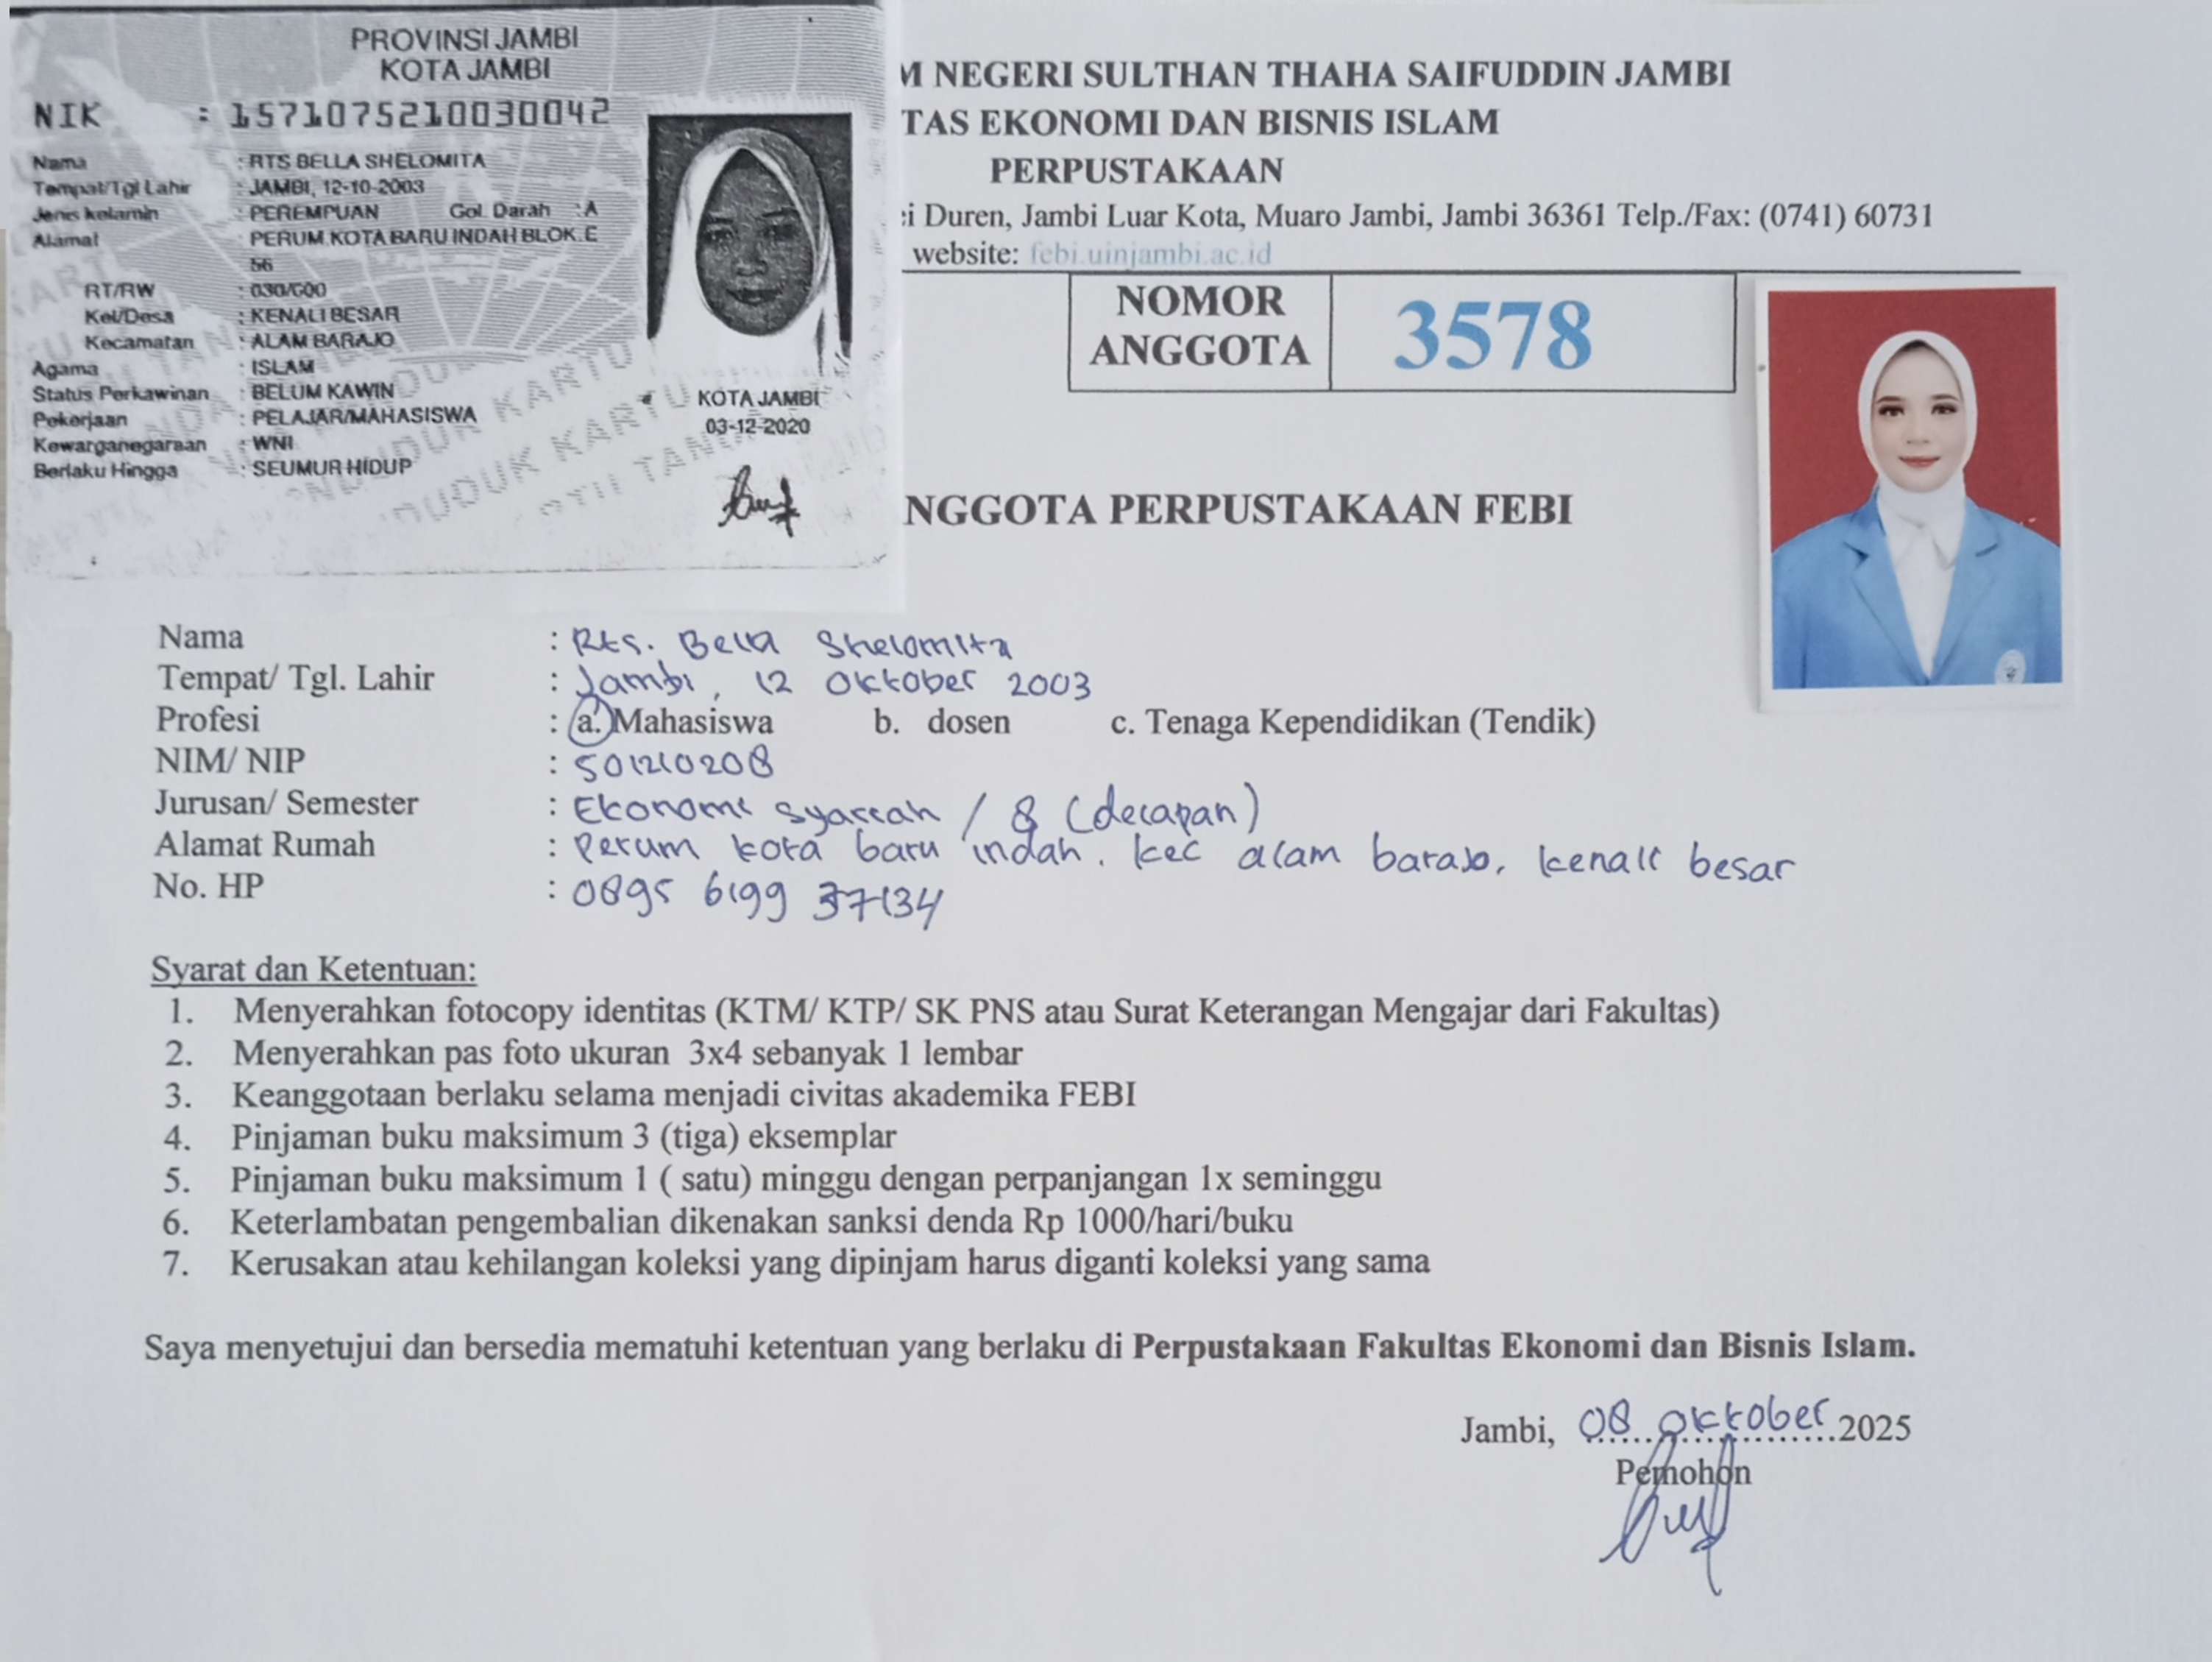 PROVINSI JAMBI
KOTA JAMBI
NIK : 1571075210030042
Nama : RTS BELLA SHELOMITA
Tempat/Tgl Lahir : JAMBI, 12-10-2003
Jenis kelamin : PEREMPUAN Gol. Darah : A
Alamat : PERUM.KOTA BARU INDAH BLOK.E
56
RT/RW : 030/000
Kel/Desa : KENALI BESAR
Kecamatan : ALAM BARAJO
Agama : ISLAM
Status Perkawinan : BELUM KAWIN
Pekerjaan : PELAJAR/MAHASISWA
Kewarganegaraan : WNI
Berlaku Hingga : SEUMUR HIDUP
KOTA JAMBI
03-12-2020
M NEGERI SULTHAN THAHA SAIFUDDIN JAMBI
TAS EKONOMI DAN BISNIS ISLAM
PERPUSTAKAAN
i Duren, Jambi Luar Kota, Muaro Jambi, Jambi 36361 Telp./Fax: (0741) 60731
website: febi.uinjambi.ac.id
NOMOR
ANGGOTA
3578
NGGOTA PERPUSTAKAAN FEBI
Nama : Rts. Bella Shelomita
Tempat/ Tgl. Lahir : Jambi, 12 Oktober 2003
Profesi : a. Mahasiswa b. dosen c. Tenaga Kependidikan (Tendik)
NIM/ NIP : 501210208
Jurusan/ Semester : Ekonomi Syariah / 8 (delapan)
Alamat Rumah : Perum kota baru indah. kec alam barajo, kenali besar
No. HP : 0895 6199 37134
Syarat dan Ketentuan:
1. Menyerahkan fotocopy identitas (KTM/ KTP/ SK PNS atau Surat Keterangan Mengajar dari Fakultas)
2. Menyerahkan pas foto ukuran 3x4 sebanyak 1 lembar
3. Keanggotaan berlaku selama menjadi civitas akademika FEBI
4. Pinjaman buku maksimum 3 (tiga) eksemplar
5. Pinjaman buku maksimum 1 ( satu) minggu dengan perpanjangan 1x seminggu
6. Keterlambatan pengembalian dikenakan sanksi denda Rp 1000/hari/buku
7. Kerusakan atau kehilangan koleksi yang dipinjam harus diganti koleksi yang sama
Saya menyetujui dan bersedia mematuhi ketentuan yang berlaku di Perpustakaan Fakultas Ekonomi dan Bisnis Islam.
Jambi, 08 oktober 2025
Pemohon